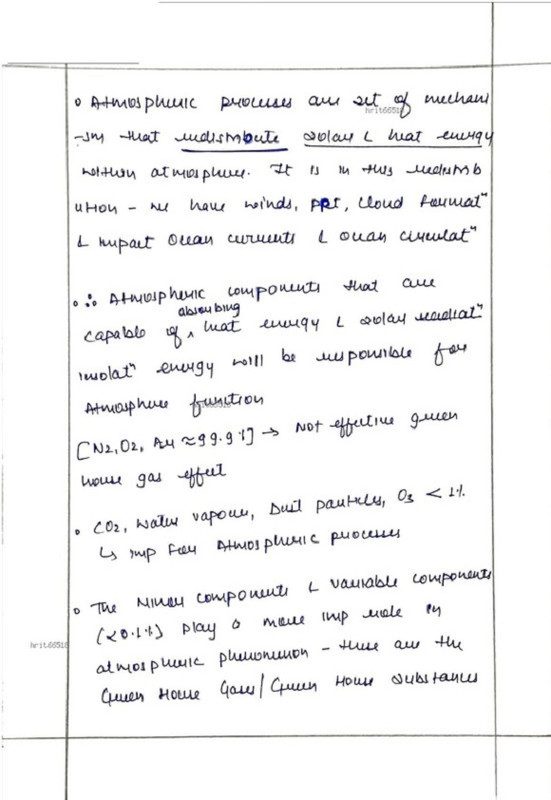 ◦ Atmospheric processes are set of mechani
hrit66518
-sm that redistribute solar & heat energy
within atmosphere. It is in this redistrib
ution - we have winds, ppt, cloud formatⁿ
& impact ocean currents & ocean circulatⁿ
◦ ∴ Atmospheric components that are
absorbing
capable of ^ heat energy & solar radiatⁿ
insolatⁿ energy will be responsible for
Atmosphere function
[N2, O2, Ar ≈ 99.9%] → Not effective green
house gas effect
• CO2, water vapour, Dust particles, O3 < 1%
↳ imp for Atmospheric processes
◦ The Minor components & variable components
(<0.1%) play a more imp role in
hrit66518
atmospheric phenomenon - these are the
Green House Gases/Green House Substances